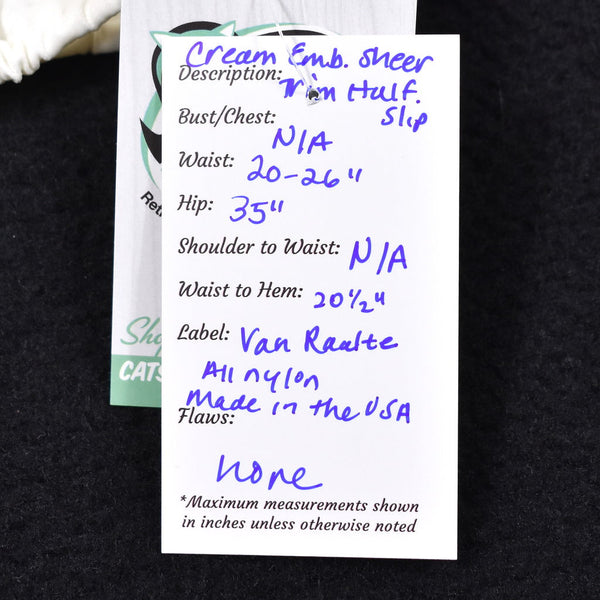 Cream Emb. Sheer
Description: Trim Half.
Slip
Bust/Chest: N/A
Waist: 20-26"
Hip: 35"
Shoulder to Waist: N/A
Waist to Hem: 20 1/2"
Label: Van Raalte
All nylon
Made in the USA
Flaws:
none
*Maximum measurements shown
in inches unless otherwise noted
Ret
Shop
CATS